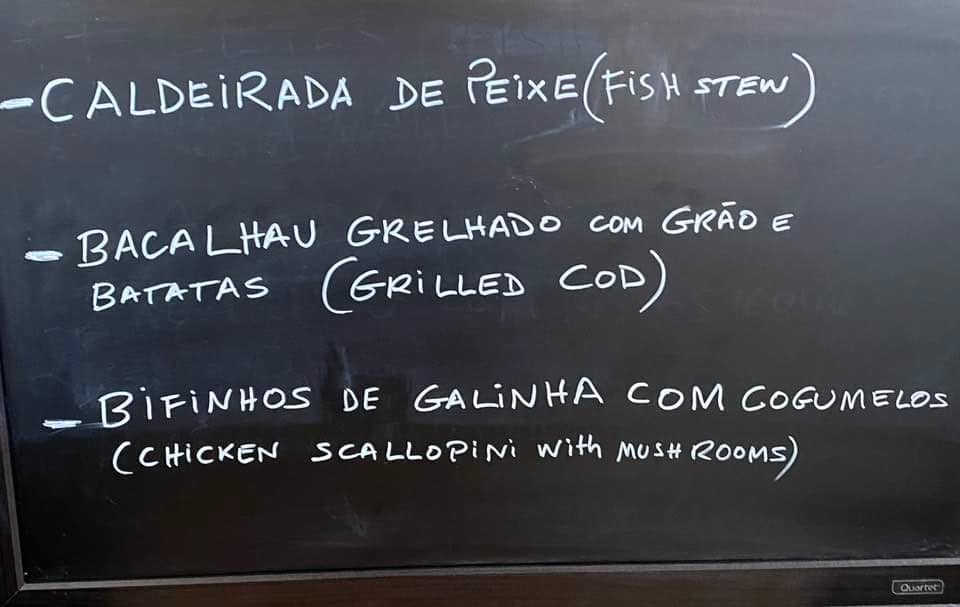 - CALDEIRADA DE PEIXE (FISH STEW)
- BACALHAU GRELHADO COM GRÃO E
BATATAS (GRILLED COD)
- BIFINHOS DE GALINHA COM COGUMELOS
(CHICKEN SCALLOPINI with MUSHROOMS)
Quartet